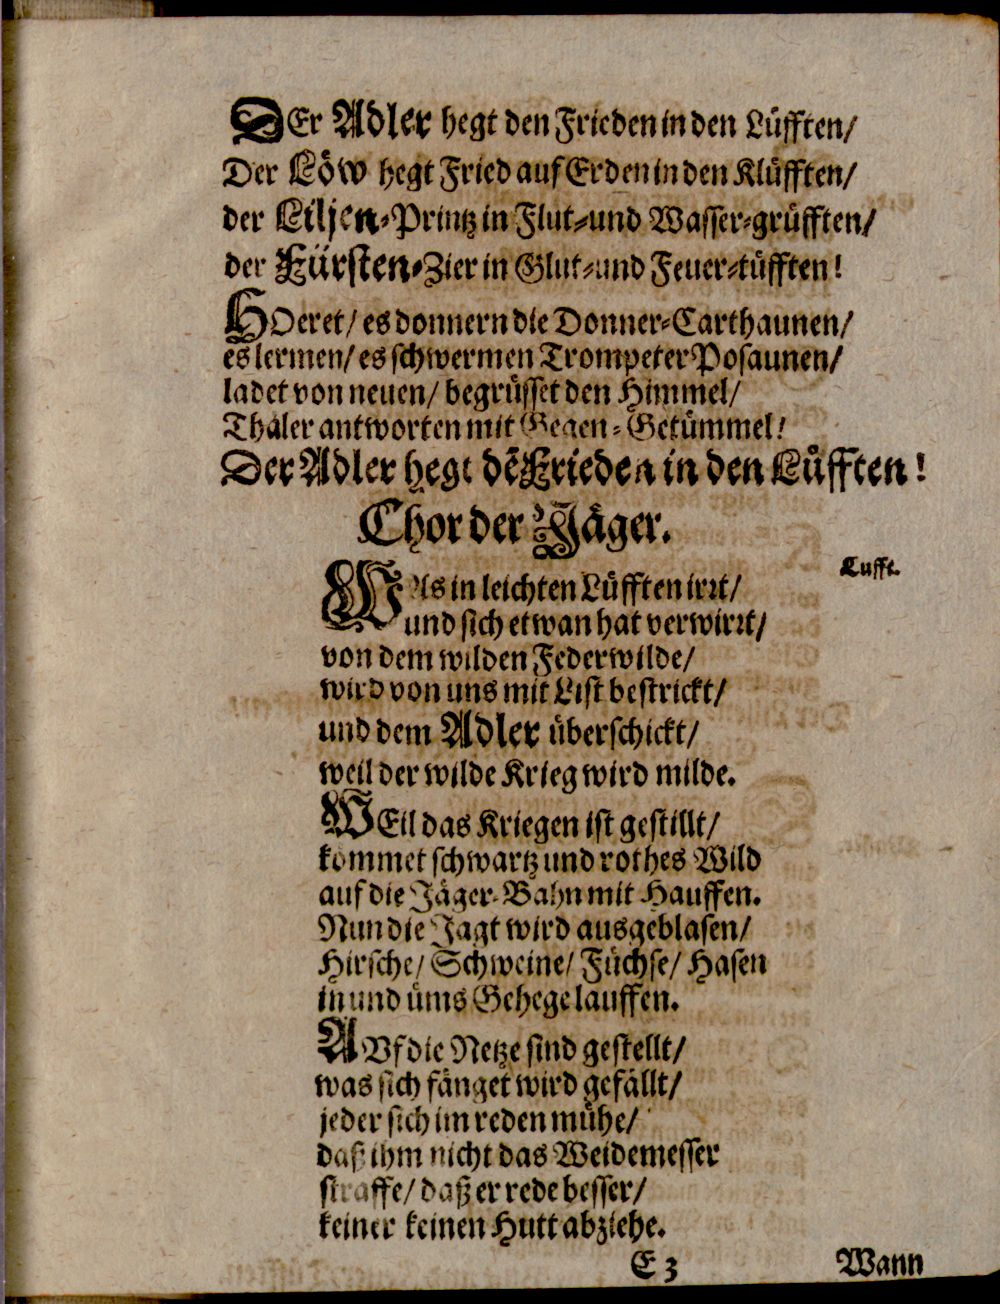 DEr Adler hegt den Frieden in den Lüfften/
Der Löw hegt Fried auf Erden in den Klüfften/
der Liljen-Printz in Flut-und Wasser-grüfften/
der Fürsten-Zier in Glut-und Feuer-tüfften!
HOeret/ es donnern die Donner-Carthaunen/
es lermen/ es schwermen Trompeter Posaunen/
ladet von neuen/ begrüsset den Himmel/
Thäler antworten mit Gegen-Getümmel!
Der Adler hegt dẽ Frieden in den Lüfften!
Chor der Jäger.
Lufft.
WAs in leichten Lüfften irrt/
und sich etwan hat verwirrt/
von dem wilden Federwilde/
wird von uns mit List bestrickt/
und dem Adler überschickt/
weil der wilde Krieg wird milde.
WEil das Kriegen ist gestillt/
kommet schwartz und rothes Wild
auf die Jäger-Bahn mit Hauffen.
Nun die Jagt wird ausgeblasen/
Hirsche/ Schweine/ Füchse/ Hasen
in und üms Gehege lauffen.
AUf die Netze sind gestellt/
was sich fänget wird gefällt/
jeder sich im reden mühe/
daß ihm nicht das Weidemesser
straffe/ daß er rede besser/
keiner keinen Hutt abziehe.
E 3 Wann